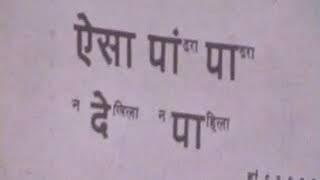 ऐसा पांढरा पाढरा
न देखिला न पाहिला